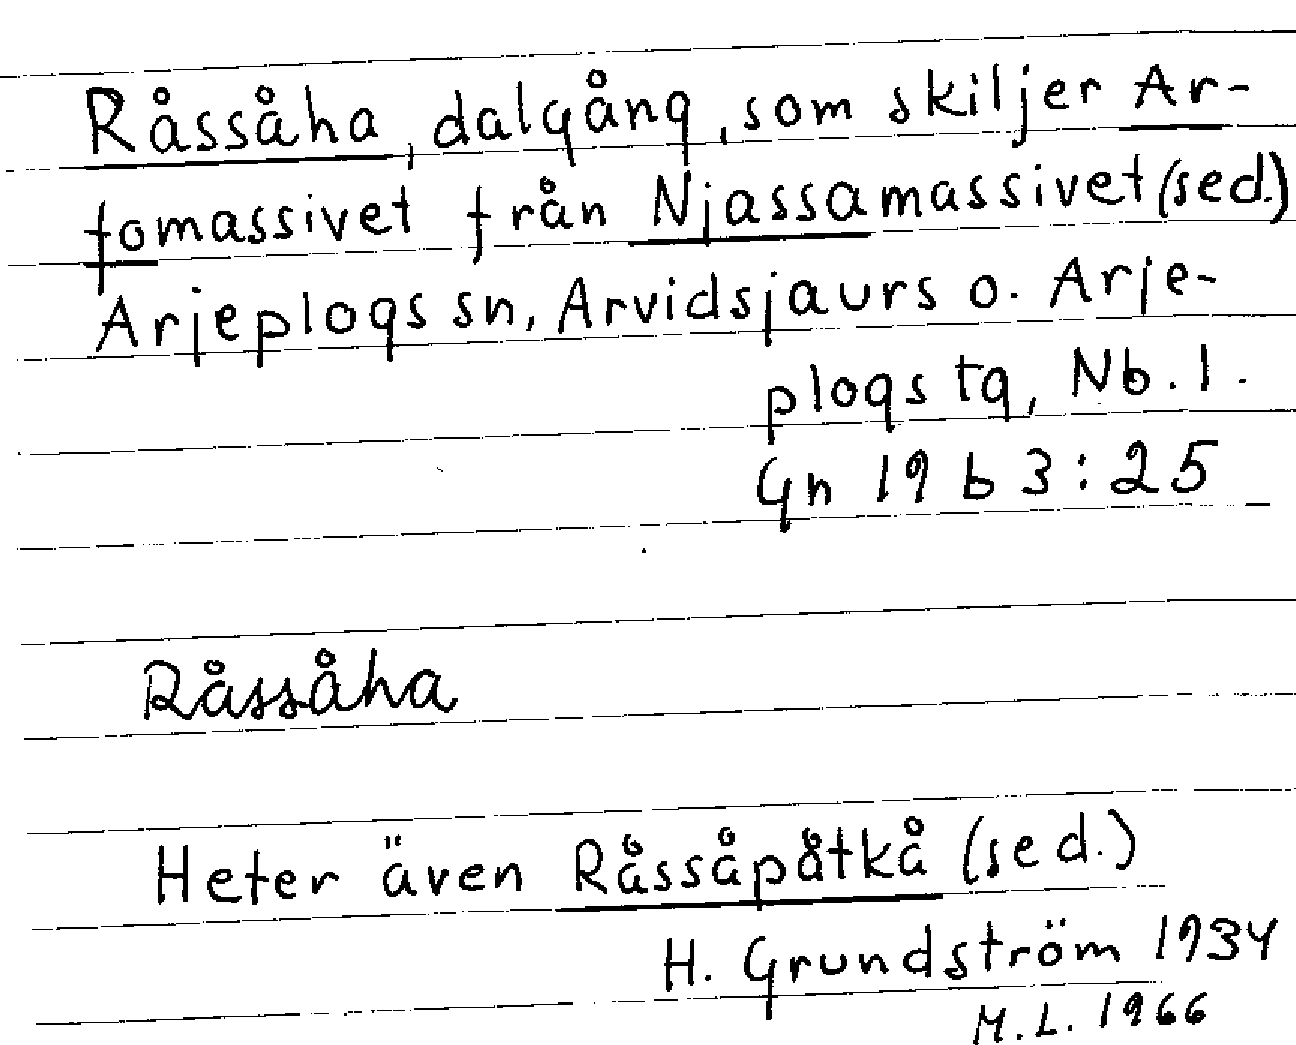 Råssåha, dalgång, som skiljer Ar-
fomassivet från Njassamassivet (sed.)
Arjeplogs sn, Arvidsjaurs o. Arje-
plogs tg, Nb. l.
Gn 19 b 3:25
Råssåha
Heter även Råssåpåtkå (sed.)
H. Grundström 1934
M.L. 1966